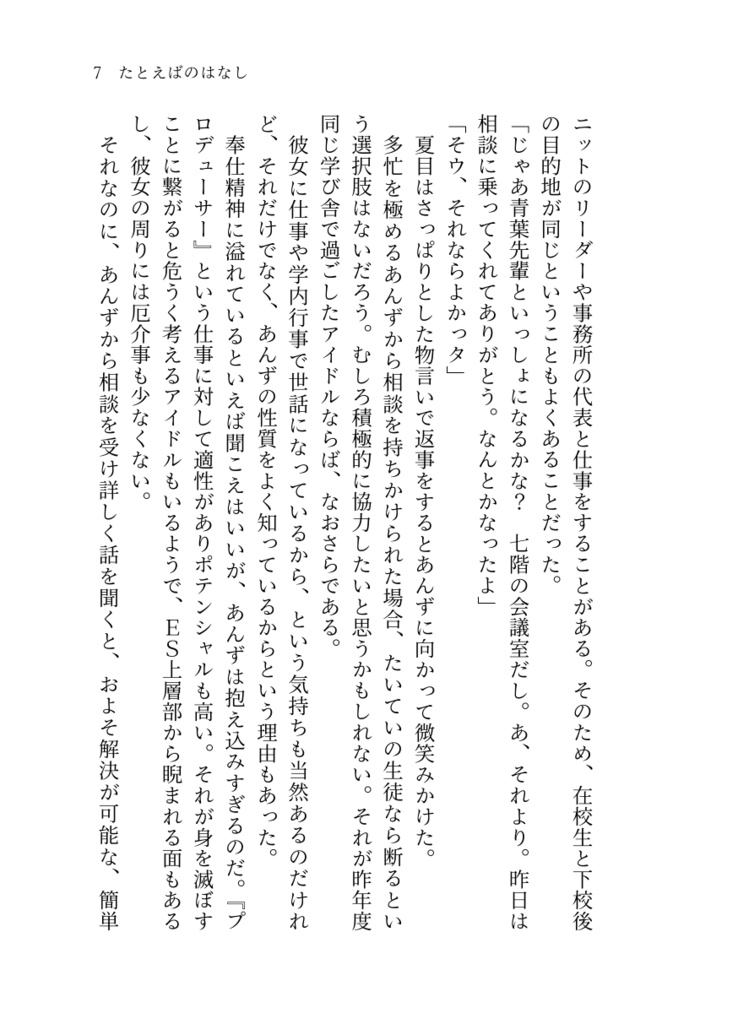 7 たとえばのはなし
ニットのリーダーや事務所の代表と仕事をすることがある。そのため、在校生と下校後
の目的地が同じということもよくあることだった。
「じゃあ青葉先輩といっしょになるかな？　七階の会議室だし。あ、それより。昨日は
相談に乗ってくれてありがとう。なんとかなったよ」
「そウ、それならよかっタ」
夏目はさっぱりとした物言いで返事をするとあんずに向かって微笑みかけた。
多忙を極めるあんずから相談を持ちかけられた場合、たいていの生徒なら断るとい
う選択肢はないだろう。むしろ積極的に協力したいと思うかもしれない。それが昨年度
同じ学び舎で過ごしたアイドルならば、なおさらである。
彼女に仕事や学内行事で世話になっているから、という気持ちも当然あるのだけれ
ど、それだけでなく、あんずの性質をよく知っているからという理由もあった。
奉仕精神に溢れているといえば聞こえはいいが、あんずは抱え込みすぎるのだ。『プ
ロデューサー』という仕事に対して適性がありポテンシャルも高い。それが身を滅ぼす
ことに繋がると危うく考えるアイドルもいるようで、ＥＳ上層部から睨まれる面もある
し、彼女の周りには厄介事も少なくない。
それなのに、あんずから相談を受け詳しく話を聞くと、およそ解決が可能な、簡単